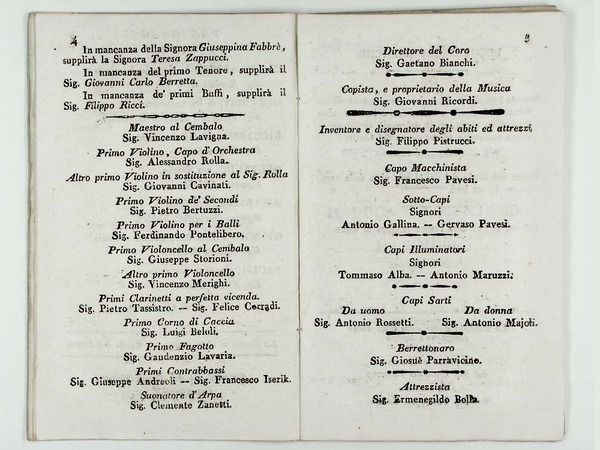 4
In mancanza della Signora Giuseppina Fabbrè,
supplirà la Signora Teresa Zappucci.
In mancanza del primo Tenore, supplirà il
Sig. Giovanni Carlo Berretta.
In mancanza de' primi Buffi, supplirà il
Sig. Filippo Ricci.
Maestro al Cembalo
Sig. Vincenzo Lavigna.
Primo Violino, Capo d'Orchestra
Sig. Alessandro Rolla.
Altro primo Violino in sostituzione al Sig. Rolla
Sig. Giovanni Cavinati.
Primo Violino de' Secondi
Sig. Pietro Bertuzzi.
Primo Violino per i Balli
Sig. Ferdinando Pontelibero.
Primo Violoncello al Cembalo
Sig. Giuseppe Storioni.
Altro primo Violoncello
Sig. Vincenzo Merighi.
Primi Clarinetti a perfetta vicenda.
Sig. Pietro Tassistro. -- Sig. Felice Corradi.
Primo Corno di Caccia
Sig. Luigi Beloli.
Primo Fagotto
Sig. Gaudenzio Lavaria.
Primi Contrabbassi
Sig. Giuseppe Andreoli -- Sig. Francesco Iserik.
Suonatore d'Arpa
Sig. Clemente Zanetti.
Direttore del Coro
Sig. Gaetano Bianchi.
Copista, e proprietario della Musica
Sig. Giovanni Ricordi.
Inventore e disegnatore degli abiti ed attrezzi,
Sig. Filippo Pistrucci.
Capo Macchinista
Sig. Francesco Pavesi.
Sotto-Capi
Signori
Antonio Gallina. -- Gervaso Pavesi.
Capi Illuminatori
Signori
Tommaso Alba. -- Antonio Maruzzi.
Capi Sarti
Da uomo Da donna
Sig. Antonio Rossetti. Sig. Antonio Majoli.
Berrettonaro
Sig. Giosuè Parravicine.
Attrezzista
Sig. Ermenegildo Bolla.